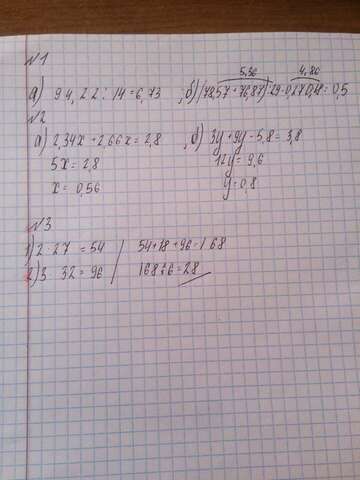 №1
5,30 4,80
а) 94,22 : 14 = 6,73 б) (78,57 + 76,87) : 29 - 0,5
№2
а) 2,34x + 2,66x = 2,8 б) 3y + 9y - 5,8 = 3,8
5x = 2,8 12y = 9,6
x = 0,56 y = 0,8
№3
1) 2 · 27 = 54 54 + 18 + 96 = 168
2) 3 32 = 96 168 : 6 = 28